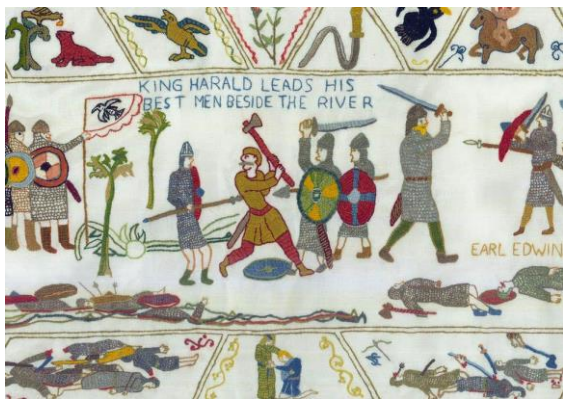 KING HARALD LEADS HIS
BEST MEN BESIDE THE RIVER
EARL EDWIN